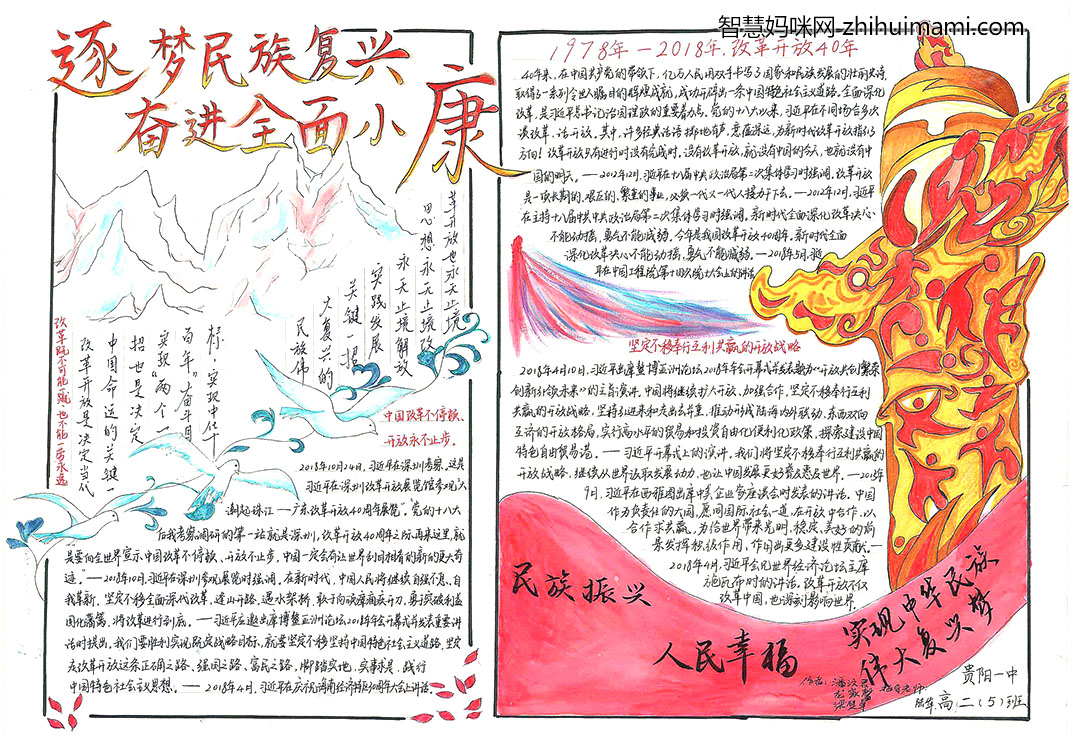 智慧妈咪网-zhihuimami.com
逐梦民族复兴
奋进全面小康
革开放也永无止境
思想永无止境改
永无止境解放
实践发展
关键一招
大复兴的
民族伟
标,实现中化
百年"奋斗目
实现"两个一
招也是决定
中国命运的关键一
改革开放是决定当代
改革既不可能一蹴
也不能一劳永逸
中国改革不停顿、
开放永不止步。
2018年10月24日,习近平在深圳考察,这是
习近平在深圳改革开放展览馆参观"大
潮起珠江——广东改革开放40周年展览"。党的十八大
后我考察调研的第一站就是深圳,改革开放40周年之际再来这里,就
是要向全世界宣示中国改革不停顿、开放不止步,中国一定会有让世界刮目相看的新的更大奇
迹。——2018年10月,习近平在深圳参观展览时强调,在新时代,中国人民将继续自强不息、自
我革新,坚定不移全面深化改革,逢山开路,遇水架桥,敢于向顽瘴痼疾开刀,勇于突破利益
固化藩篱,将改革进行到底。——习近平应邀出席博鳌亚洲论坛2018年会开幕式并发表重要讲
话时提出,我们要胜利实现既定战略目标,就要坚定不移坚持中国特色社会主义道路,坚定
在改革开放这条正确之路、强国之路、富民之路,脚踏实地、实事求是、践行
中国特色社会主义思想。——2018年4月,习近平在庆祝海南经济特区30周年大会上讲话。
1978年-2018年,改革开放40年
40年来,在中国共产党的带领下,亿万人民用双手书写了国家和民族发展的壮丽史诗,
取得了一系列令世人瞩目的辉煌成就,成功开辟出一条中国特色社会主义道路。全面深化
改革,是习近平总书记治国理政的重要着力点。党的十八大以来,习近平在不同场合多次
谈改革、话开放。其中,许多经典话语掷地有声,意蕴深远,为新时代改革开放指引了
方向!改革开放只有进行时没有完成时。没有改革开放,就没有中国的今天,也就没有中
国的明天。——2012年12月,习近平在十八届中共政治局第二次集体学习时强调。改革开放
是一项长期的、艰巨的、繁重的事业,必须一代又一代人接力干下去。——2012年12月,习近平
在主持十八届中共中央政治局第二次集体学习时强调。新时代全面深化改革决心
不能动摇,勇气不能减弱。今年是我国改革开放40周年。新时代全面
深化改革决心不能动摇、勇气不能减弱。——2018年5月,习近
平在中国工程院第十四次院士大会上的讲话
坚定不移奉行互利共赢的开放战略
2018年4月10日,习近平出席博鳌亚洲论坛2018年年会开幕式并发表题为《开放共创繁荣
创新引领未来》的主旨演讲。中国将继续扩大开放、加强合作,坚定不移奉行互利
共赢的开放战略,坚持引进来和走出去并重,推动形成陆海内外联动、东西双向
互济的开放格局,实行高水平的贸易和投资自由化便利化政策,探索建设中国
特色自由贸易港。——习近平开幕式上的演讲。我们将坚定不移奉行互利共赢的
开放战略,继续从世界汲取发展动力,也让中国发展更好惠及世界。——2015年
9月,习近平在西雅图出席中美企业家座谈会时发表的讲话。中国
作为负责任的大国,愿同国际社会一道,在开放中合作,以
合作求共赢,为给世界带来光明、稳定、美好的前
景发挥积极作用、作出更多建设性贡献。——
2018年4月,习近平会见世界经济论坛主席
施瓦布时的讲话。改革开放不仅
改革中国,也深刻影响世界。
民族振兴
人民幸福
实现中华民族
伟大复兴梦
作者:
指导老师:
贵阳一中
高二(5)班